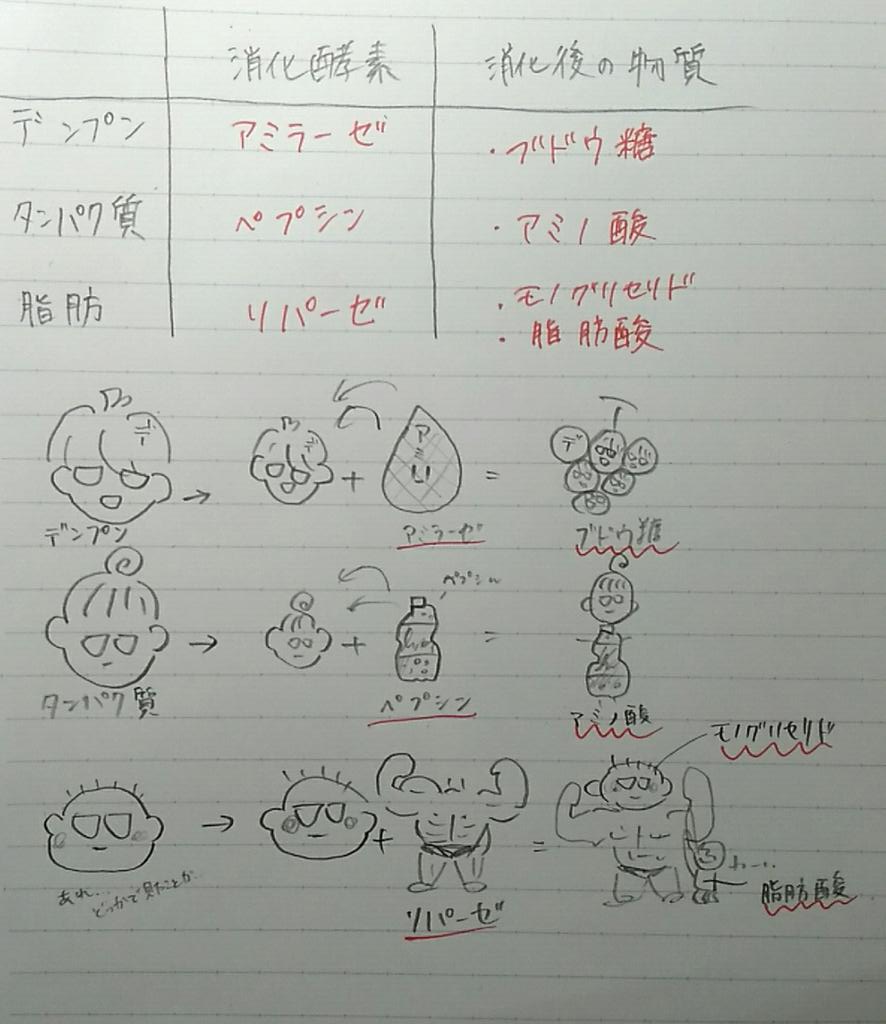 消化酵素 消化後の物質
デンプン アミラーゼ ・ブドウ糖
タンパク質 ペプシン ・アミノ酸
脂肪 リパーゼ ・モノグリセリド
・脂肪酸
デ
デ
アミ
デ
+ =
デンプン アミラーゼ ブドウ糖
ペプシ
+ =
タンパク質 ペプシン アミノ酸
モノグリセリド
+ =
あれ…
どっかで見たことが…
リパーゼ
脂肪酸